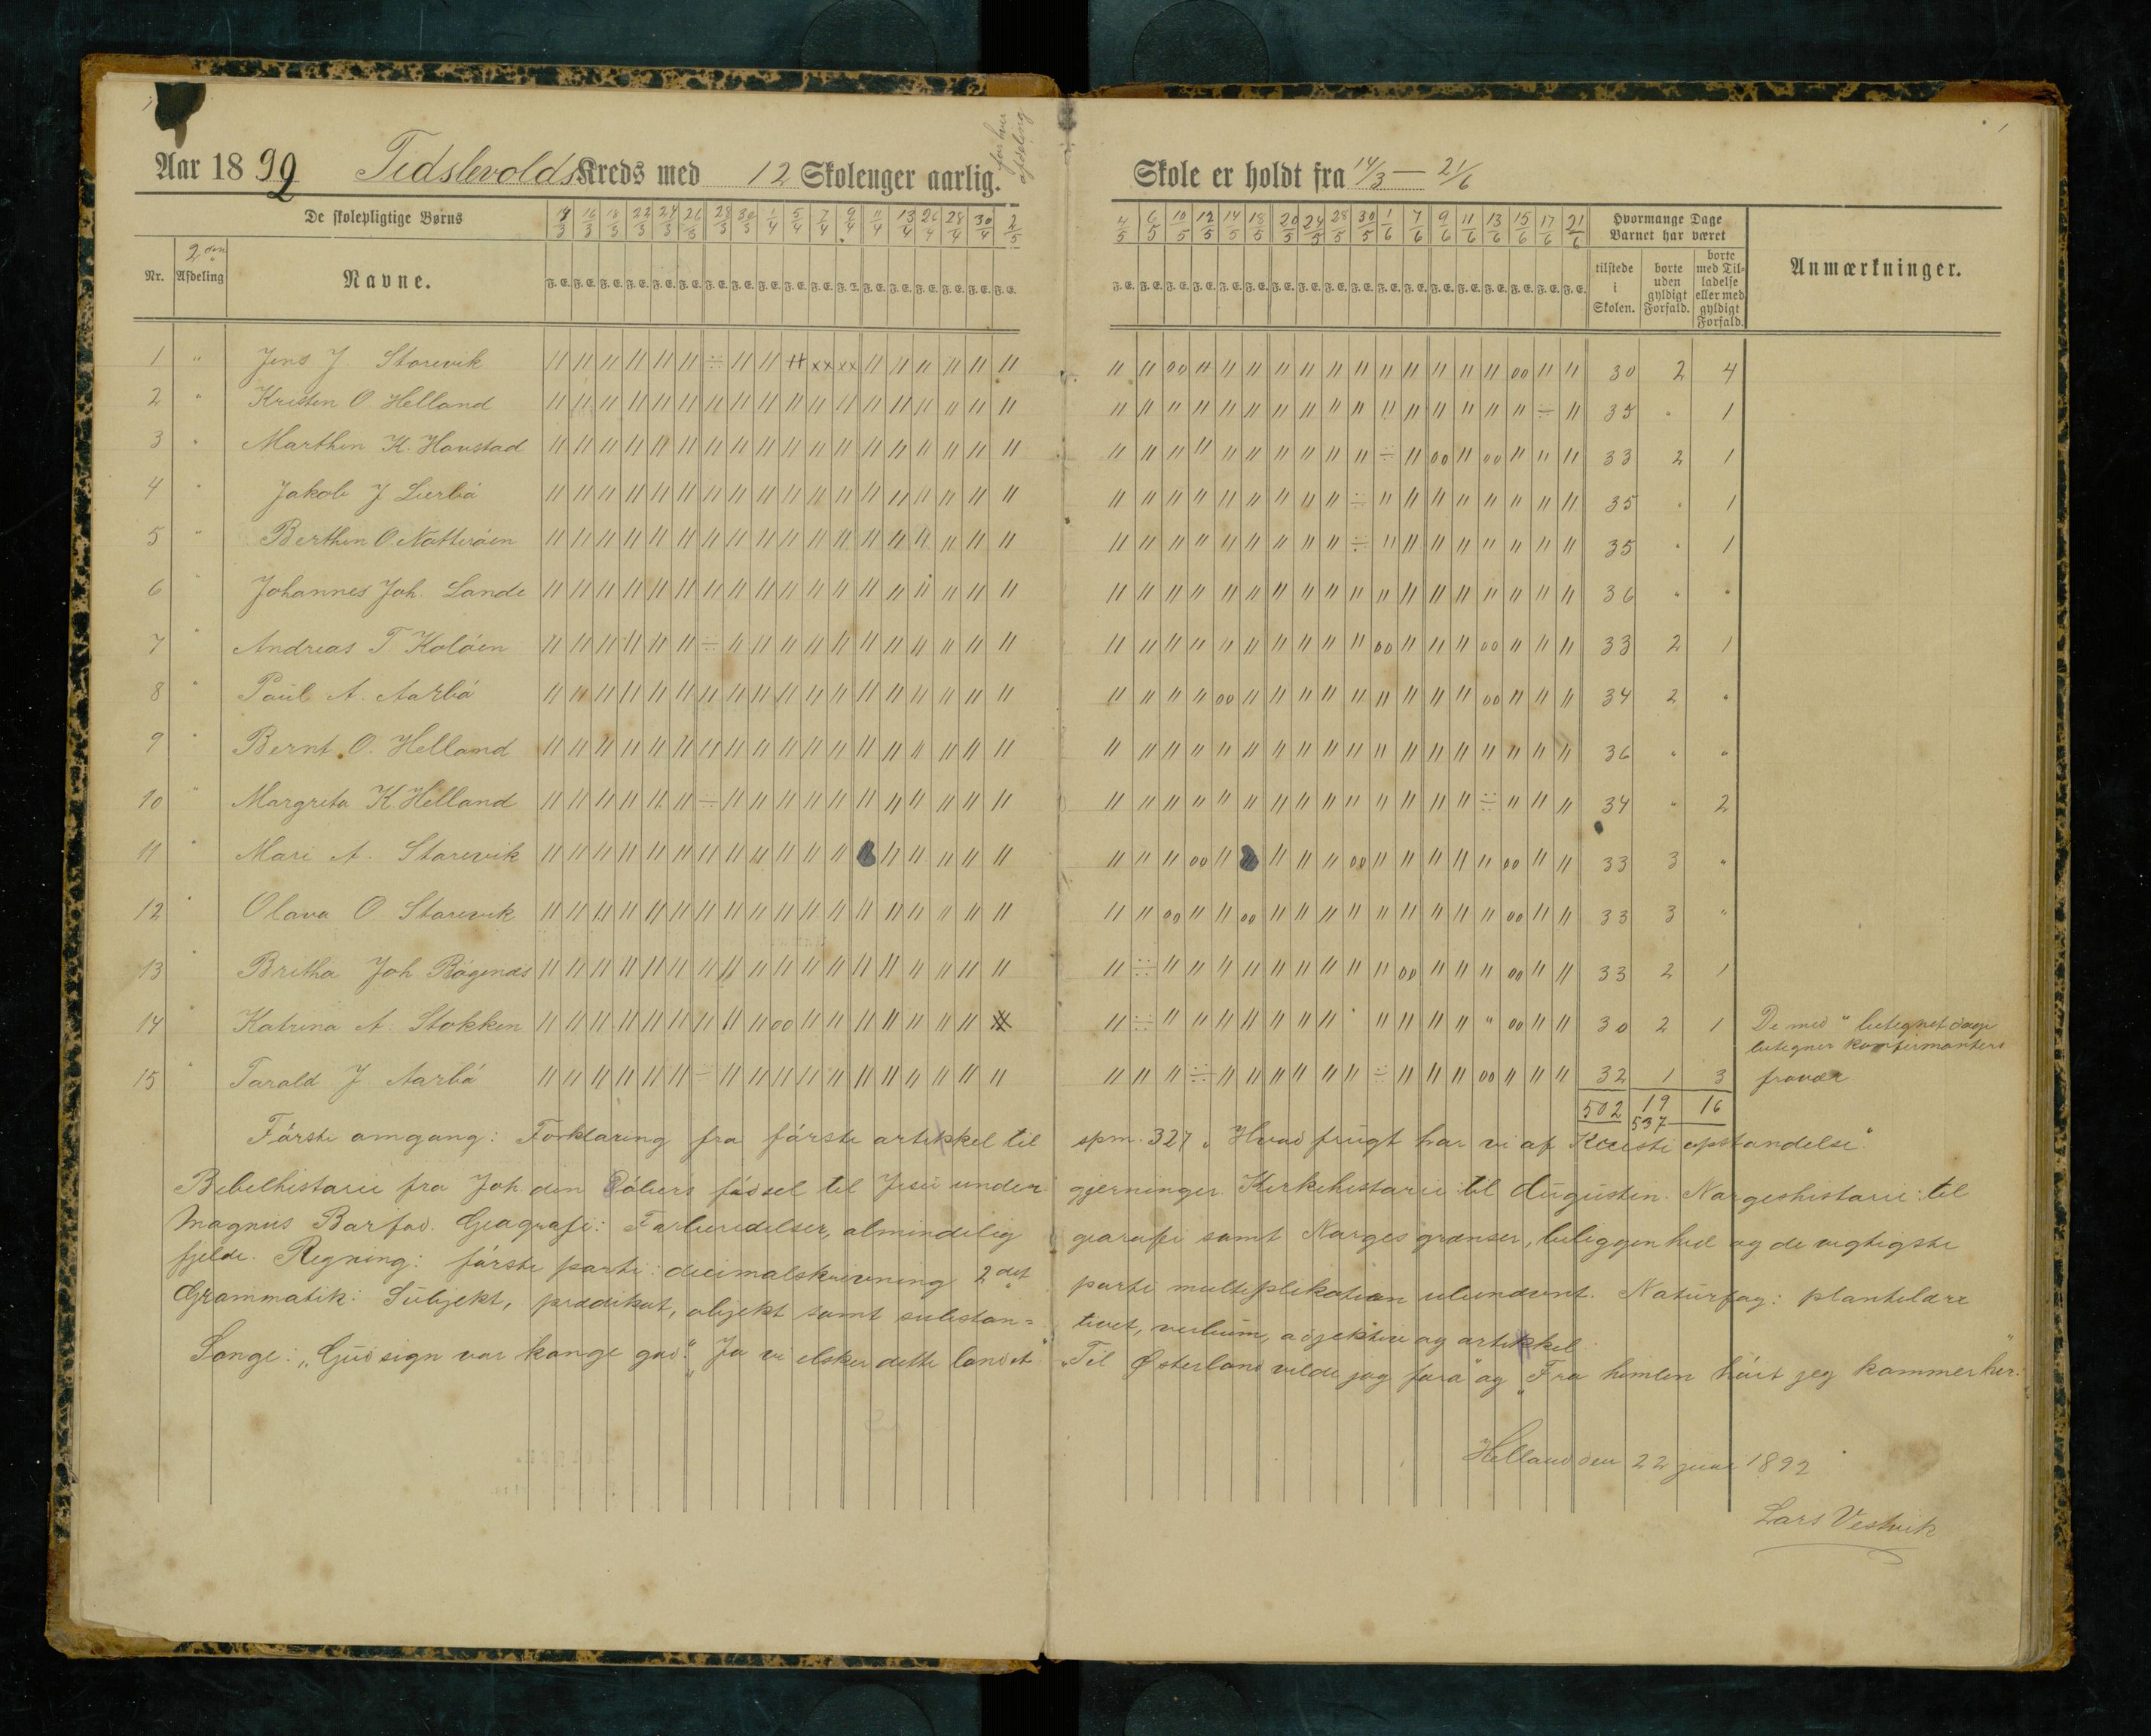 Aar 1892 Tidslevolds Kreds med 12 Skoleuger aarlig. for hver afdeling
Skole er holdt fra 14/3 — 21/6
De skolepligtige Børns
14/3 16/3 18/3 22/3 24/3 26/3 28/3 30/3 1/4 5/4 7/4 9/4 11/4 13/4 26/4 28/4 30/4 2/5
4/5 6/5 10/5 12/5 14/5 18/5 20/5 24/5 28/5 30/5 1/6 7/6 9/6 11/6 13/6 15/6 17/6 21/6
Hvormange Dage Barnet har været
Nr. 2den Afdeling Navne. F. E.
tilstede i Skolen. borte uden gyldigt Forfald. borte med Tilladelse eller med gyldigt Forfald. Anmærkninger.
1 " Jens J. Storevik 30 2 4
2 " Kristen O Helland 35 " 1
3 " Marthin K. Havstad 33 2 1
4 " Jakob J Lierbö 35 " 1
5 " Berthin O Natteröen 35 " 1
6 " Johannes Joh. Lande 36 " "
7 " Andreas T Kolöen 33 2 1
8 " Paul A. Aarbö 34 2 "
9 " Bernt O. Helland 36 " "
10 " Margreta K Helland 34 " 2
11 " Mari A. Storevik 33 3 "
12 " Olava O. Storevik 33 3 "
13 " Britha Joh Bögenæs 33 2 1
14 " Katrina A. Stokken 30 2 1 De med " betegnet dage betegner konfirmanters
15 " Tarald J Aarbö 32 1 3 fravær
502 19 16
537
Förste omgang: Forklaring fra förste artikkel til spm. 327 „Hvad frugt har vi af Kristi opstandelse"
Bibelhistorie fra Joh. den Döbers födsel til Jesu undergjerninger. Kirkehistorie: til Augustin. Norgeshistorie: til
Magnus Barfod. Geografi: Forberedelser, almindelig gearafi samt Norges grænser, beliggenhed og de vigtigste
fjelde. Regning: förste parti: decimalskrivning 2det parti multiplikation ubenævnt. Naturfag: plantelære
Grammatik: Subjekt, prædikat, objekt samt substantivet, verbum, adjektiv og artikkel
Sange: „Gud sign vor konge god". „Ja vi elsker dette landet" „Til Østerland vilde jeg fara" og „Fra himlen höit jeg kommer her"
Helland den 22 juni 1892
Lars Vestvik